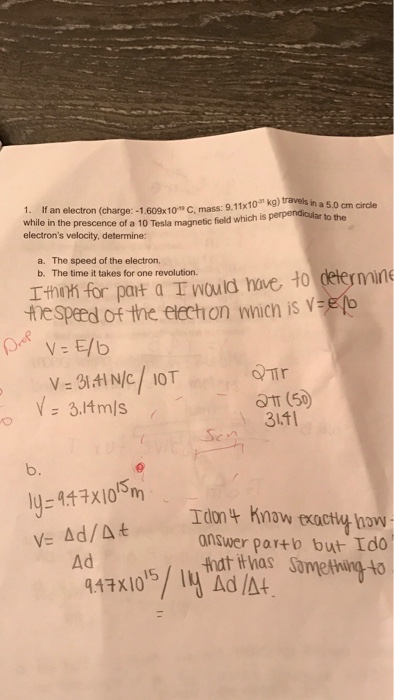 1. If an electron (charge: -1.609x10⁻¹⁹ C, mass: 9.11x10⁻³¹ kg) travels in a 5.0 cm circle
while in the prescence of a 10 Tesla magnetic field which is perpendicular to the
electron's velocity, determine:
a. The speed of the electron.
b. The time it takes for one revolution.
I think for part a I would have to determine
the speed of the electron which is V=E/b
V = E/b
V = 31.41 N/C / 10T
V = 3.14 m/s
2πr
2π (50)
31.41
5cm
b.
ly=9.47x10¹⁵m
V= Δd/Δt
Δd
9.47x10¹⁵/ 1ly Δd/Δt.
=
I don't know exactly how
answer part b but I do
that it has something to